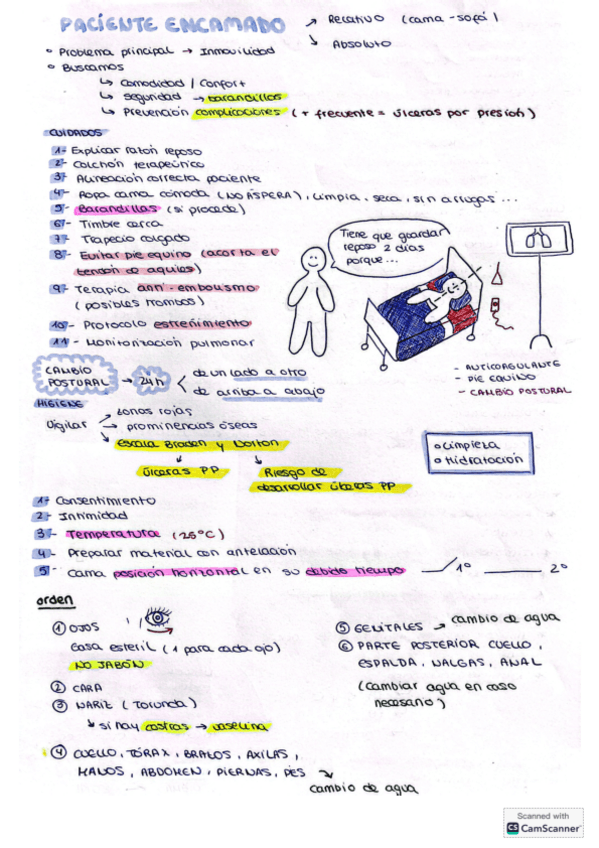 PACIENTE ENCAMADO
→ Relativo (cama - sofá)
↘ Absoluto
• Problema principal → Inmovilidad
• Buscamos
↳ Comodidad / Confort
↳ Seguridad → barandillas
↳ Prevención complicaciones (+ frecuente = úlceras por presión)
CUIDADOS
1- Explicar razón reposo
2- Colchón terapeútico
3- Alineación correcta paciente
4- Ropa cama cómoda (NO ÁSPERA), limpia, seca, sin arrugas ...
5- Barandillas (si procede)
6- Timbre cerca
7- Trapecio colgado
8- Evitar pie equino (acorta el
tendón de aquiles)
9- Terapia anti-embolismo
(posibles trombos)
10- Protocolo estreñimiento
11- Monitorización pulmonar
Tiene que guardar
reposo 2 días
porque...
- ANTICOAGULANTE
- PIE EQUINO
- CAMBIO POSTURAL
CAMBIO
POSTURAL → 24h
de un lado a otro
de arriba a abajo
HIGIENE
Vigilar
→ zonas rojas
→ prominencias óseas
→ escala Braden y Norton
Úlceras PP
Riesgo de
desarrollar úlceras PP
o Limpieza
o Hidratación
1- Consentimiento
2- Intimidad
3- Temperatura (25°C)
4- Preparar material con antelación
5- Cama posición horizontal en su debido tiempo
1º
2º
orden
① OJOS
Gasa esteril (1 para cada ojo)
NO JABÓN
② CARA
③ NARIZ (Torunda)
↳ si hay costras → vaselina
④ CUELLO, TÓRAX, BRAZOS, AXILAS,
MANOS, ABDOMEN, PIERNAS, PIES
↘ cambio de agua
⑤ GENITALES → cambio de agua
⑥ PARTE POSTERIOR CUELLO,
ESPALDA, NALGAS, ANAL
(cambiar agua en caso
necesario)
Scanned with
CS CamScanner